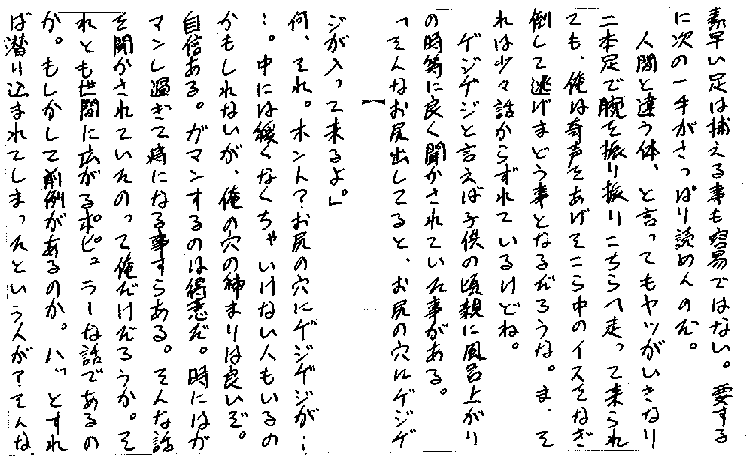 素早い足は捕える事も容易ではない。要する
に次の一手がさっぱり読めんのだ。
人間と違う体、と言ってもヤツがいきなり
二本足で腕を振り振りこちらへ走って来られ
ても、俺は奇声をあげそこら中のイスをなぎ
倒して逃げまどう事となるだろうな。ま、そ
れは少々話からずれているけどね。
ゲジゲジと言えば子供の頃親に風呂上がり
の時等に良く聞かされていた事がある。
「そんなお尻出してると、お尻の穴にゲジゲ
ジが入って来るよ。」
何、それ。ホント?お尻の穴にゲジゲジが…
…。中には緩くなくちゃいけない人もいるの
かもしれないが、俺の穴の締まりは良いぞ。
自信ある。ガマンするのは得意だ。時にはガ
マンし過ぎて痔になる事すらある。そんな話
を聞かされていたのって俺だけだろうか。そ
れとも世間に広がるポピュラーな話であるの
か。もしかして前例があるのか。ハッとすれ
ば潜り込まれてしまったという人が?そんな